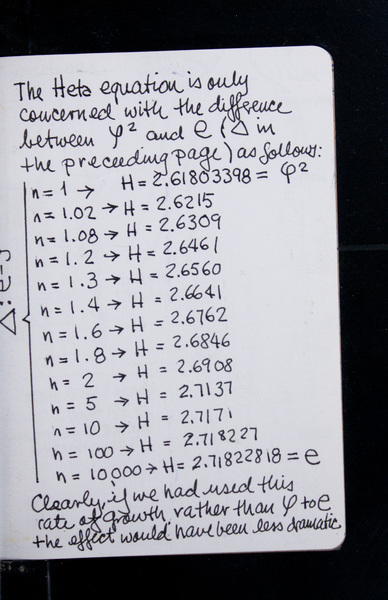 The Heta equation is only
concerned with the difference
between φ² and e (Δ in
the preceeding page) as follows:
n = 1 → H = 2.61803398 = φ²
n = 1.02 → H = 2.6215
n = 1.08 → H = 2.6309
n = 1.2 → H = 2.6461
n = 1.3 → H = 2.6560
n = 1.4 → H = 2.6641
n = 1.6 → H = 2.6762
n = 1.8 → H = 2.6846
n = 2 → H = 2.6908
n = 5 → H = 2.7137
n = 10 → H = 2.7171
n = 100 → H = 2.718227
n = 10000 → H = 2.71822818 = e
Clearly, if we had used this
rate of growth rather than φ to e
the effect would have been less dramatic